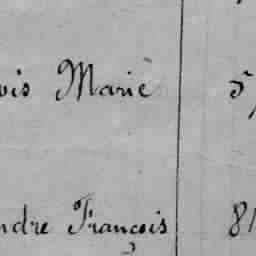 ois Marie
ndre François 81